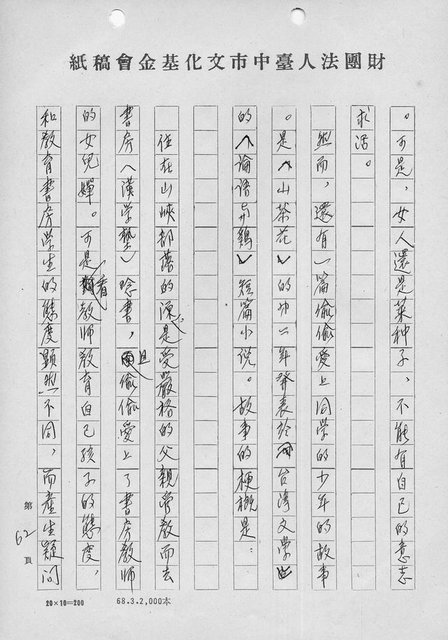 財團法人臺中市文化基金會稿紙
。可是，女人還是菜种子，不能有自己的意志
求活。
然而，還有一篇偷偷愛上同學的少年的故事
。是〈山茶花〉的中 年發表於台湾文学
的〈論語與鷄〉短篇小說。故事的梗概是：
住在山峽部落的源是受嚴格的父親管教而去
書房（漢学塾）唸書，且偷偷愛上了書房教師
的女兒嬋。可是看教師教育自己孩子的態度，
和教育書房学生的態度顯然不同，而產生疑问
第62頁
20×10=200 68.3.2,000本